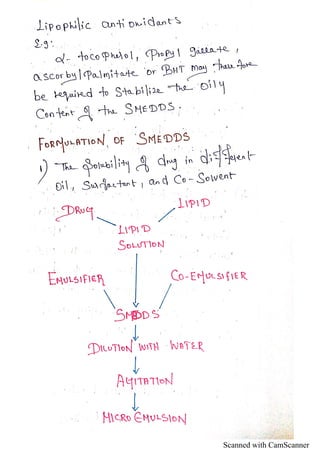 Lipophilic antioxidants
E.g:
α- tocopherol, Propyl gallate,
ascorbyl palmitate or BHT may therefore
be required to stabilize the oily
Content of the SMEDDS.
FORMULATION OF SMEDDS
1) The Solubility of drug in different
Oil, Surfactant, and Co-Solvent
DRUG LIPID
LIPID
SOLUTION
EMULSIFIER CO-EMULSIFIER
SMEDDS
DILUTION WITH WATER
AGITATION
MICRO EMULSION
Scanned with CamScanner